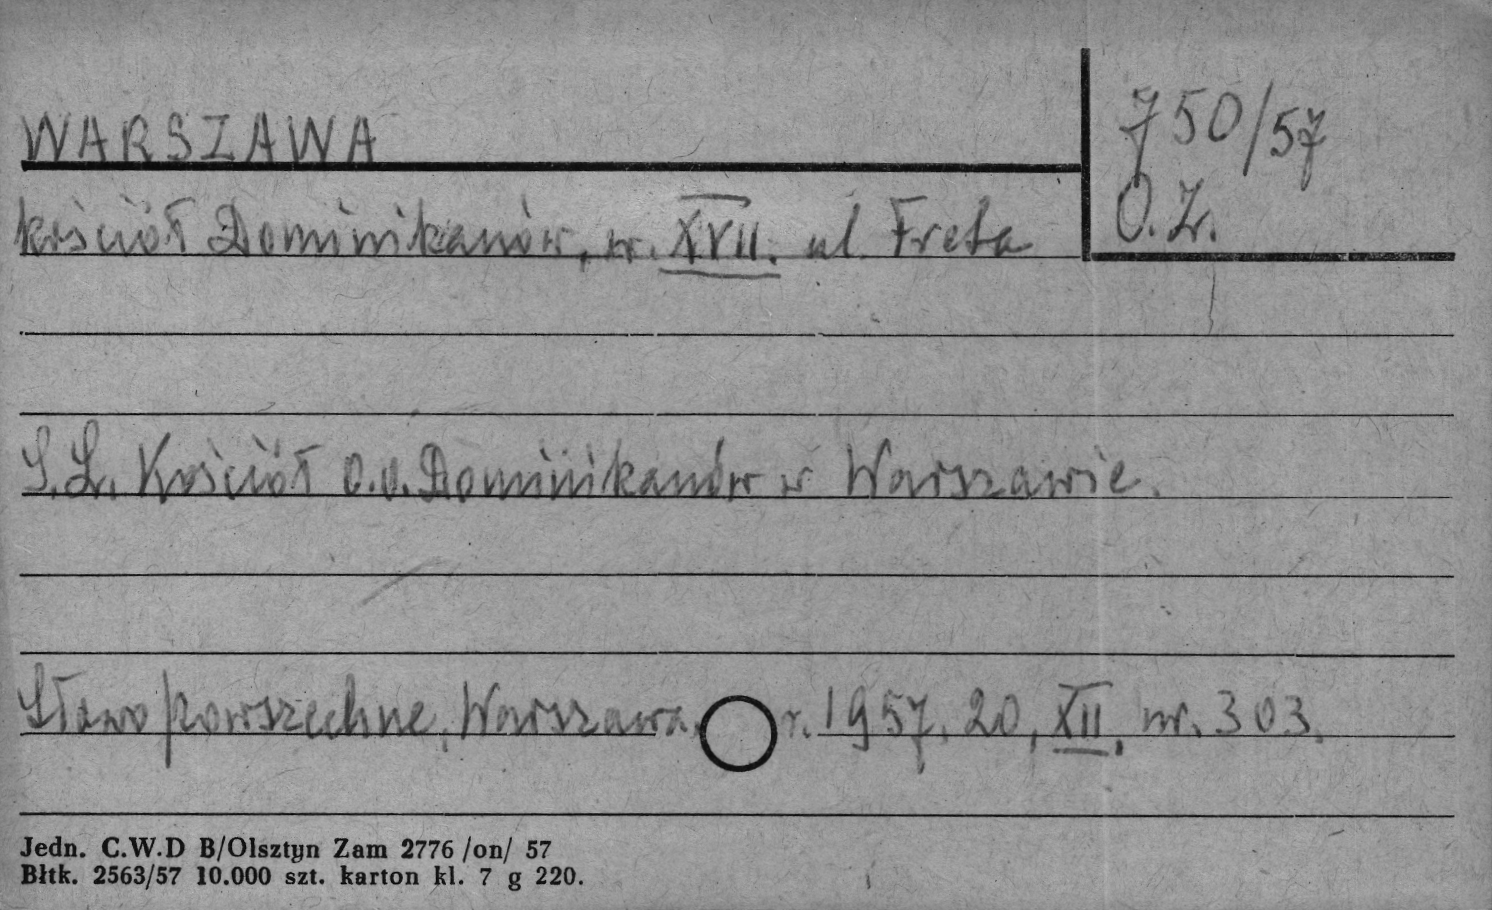 WARSZAWA
750/57
O.Z.
kościół Dominikanów, w. XVII. ul. Freta
S.L. Kościół O.O. Dominikanów w Warszawie.
Słowo Powszechne, Warszawa, r. 1957, 20, XII, nr. 303.
Jedn. C.W.D B/Olsztyn Zam 2776 /on/ 57
Błtk. 2563/57 10.000 szt. karton kl. 7 g 220.